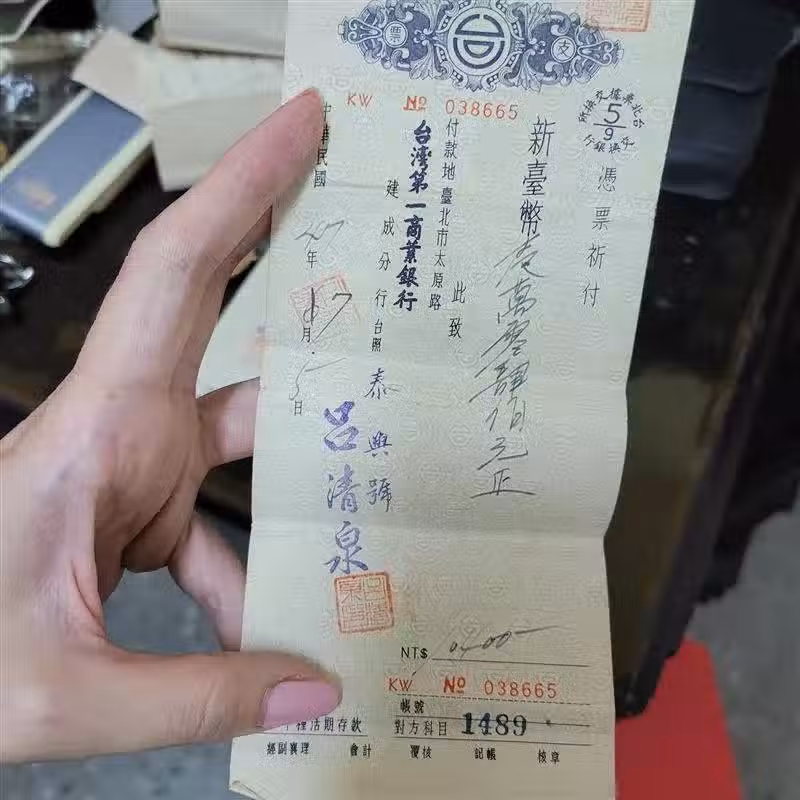 支票
KW № 038665
憑票祈付
新臺幣壹萬零肆佰元正
此致
付款地臺北市太原路
台灣第一商業銀行
建成分行台照
泰興號
呂清泉
中華民國
年
月
日
NT$ 10400—
KW № 038665
帳號
種活期存款
對方科目 1489
經副襄理 會計 覆核 記帳 核章